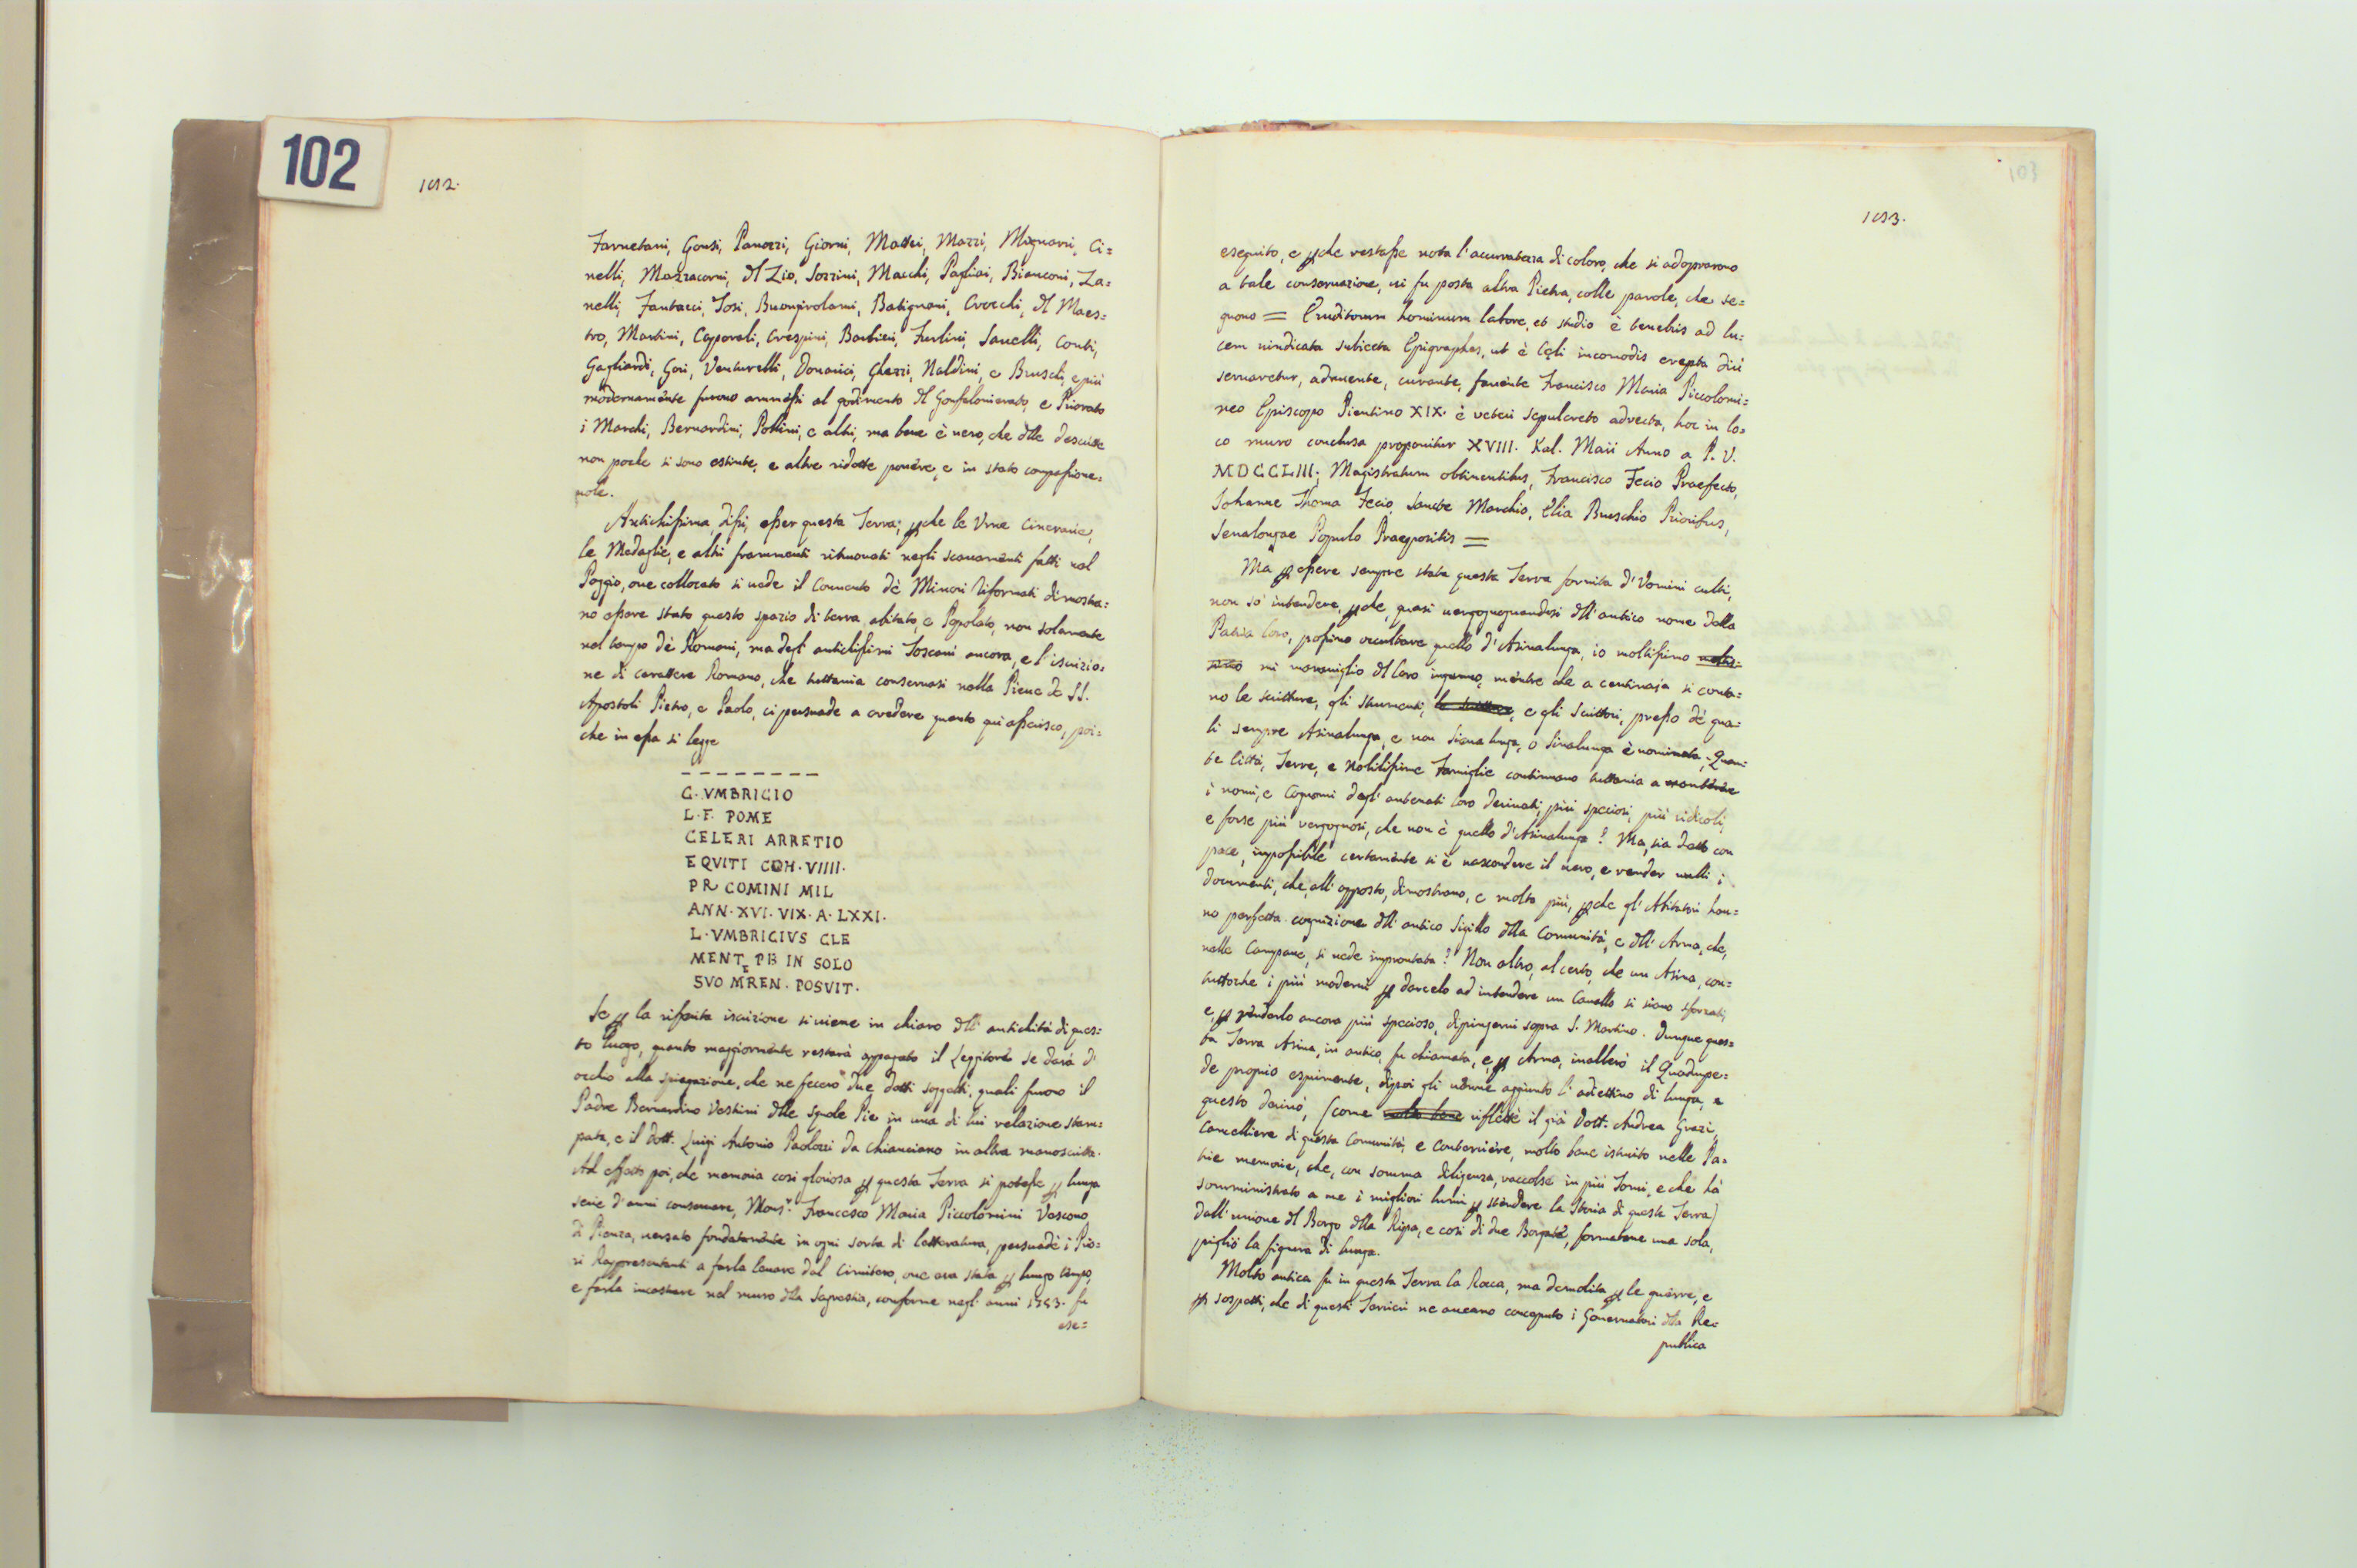 102
102.
Farnetani, Gonsi, Panozzi, Giorni, Mattei, Mazzi, Mignarri, Ci=
nelli, Mazzacorni, Del Zio, Sozzini, Macchi, Pagliai, Bianconi, Za=
nelli, Fantacci, Tosi, Buongirolami, Batignani, Crocchi, Del Maes=
tro, Martini, Caporali, Crespini, Barbieri, Furlini, Sanelli, Conti,
Gagliardi, Gori, Venturelli, Donnici, Ghezzi, Naldini, e Bruschi, e più
modernamente furono ammessi al godimento del Gonfalonierato, e Priorato
i Marchi, Bernardini, Pollini, e altri, ma bene è vero, che delle descritte
non poche si sono estinte, e altre ridotte povere, e in stato compassione=
vole.
Antichissima, dissi, esser questa Terra; perche le Vrne cinerarie,
le Medaglie, e altri frammenti ritruovati negli scavamenti fatti nel
Poggio, ove collocato si vede il Convento dè Minori Riformati dimostra=
no essere stato questo spazio di terra abitato, e Popolato, non solamente
nel tempo dè Romani, ma degl' antichissimi Toscani ancora, e l' iscrizio=
ne di carattere Romano, che tuttavia conservasi nella Pieve de SS.
Apostoli Pietro, e Paolo, ci persuade a credere quanto qui asserisco, poi=
che in essa si legge
C. VMBRICIO
L. F. POME
CELERI ARRETIO
EQVITI COH. VIIII.
PR COMINI MIL
ANN. XVI. VIX. A. LXXI.
L. VMBRICIVS CLE
MENT PB IN SOLO
E
SVO MREN. POSVIT.
Se per la riferita iscrizione si viene in chiaro dell' antichità di ques=
to luogo, quanto maggiormente restarà appagato il Leggitore se darà d'
occhio alla spiegazione, che ne fecero due dotti soggetti, quali furono il
Padre Bernardino Vestini delle Squole Pie in una di lui relazione stam=
pata, e il Dott. Luigi Antonio Paolozzi da Chianciano in altra manoscritta.
Ad effetto poi, che memoria così gloriosa per questa Terra si potesse per lunga
serie d' anni conservare, Mons.r Francesco Maria Piccolomini Vescovo
di Pienza, versato fondatamente in ogni sorta di letteratura, persuadè i Prio=
ri Rappresentanti a farla levare dal Cimitero, ove era stata per lungo tempo,
e farla incastrare nel muro della Sagrestia, conforme negl' anni 1753. fu
ese=
103
103.
eseguito, e perche restasse nota l' accuratezza di coloro, che si adoprarono
a tale conservazione, vi fu posta altra Pietra, colle parole, che se=
guono = Eruditorum hominum labore, et studio è tenebris ad lu=
cem vindicata subiecta Epigraphes, ut è Celi incomodis erepta diù
servaretur, adnuente, curante, favente Francisco Maria Piccolomi=
neo Episcopo Pientino XIX. è veteri sepulcreto advecta, hoc in lo=
co muro conclusa proponitur XVIII. Kal. Maii Anno a P. V.
MDCCLIII; Magistratum obtinentibus, Francisco Fecio Praefecto,
Iohanne Thoma Fecio, Sancte Marchio, Elia Bruschio Prioribus,
Senalongae Populo Praepositis =
Ma per essere sempre stata questa Terra fornita d' Vomini culti,
non sò intendere, perche, quasi vergogognandosi dell' antico nome della
Patria loro, possino occultare quello d' Asinalunga, io moltissimo
mi maraviglio del loro inganno, mentre che a centinaja si conta=
no le scritture, gli strumenti, le scritture, e gli Scrittori, presso dè qua=
li sempre Asinalunga, e non Siena lunga, o Sinalunga è nominata; Quan=
te Città, Terre, e Nobilissime Famiglie continuano tuttavia a mantenere
i nomi, e Cognomi degl' antenati loro derivati, più speciosi, più ridicoli,
e forse più vergognosi, che non è quello d' Asinalunga? Ma, sia detto con
pace, impossibile certamente si è nascondere il vero, e render nulli i
documenti, che all' opposto, dimostrano, e molto più, perche gl' Abitatori han=
no perfetta cognizione dell' antico Sigillo della Comunità, e dell' Arma, che,
nelle Campane, si vede improntata? Non altro, al certo, che un Asina, con=
tuttoche i più moderni per darcelo ad intendere un Cavallo si siano sforzati,
e, per renderlo ancora più specioso, dipingervi sopra S. Martino. Dunque ques=
ta Terra Asina, in antico, fu chiamata, e, per Arma, inalberò il Quadrupe=
de proprio esprimente, dipoi gli venne aggiunto l' adiettivo di lunga, e
questo derivò, (come molto bene riflette il già Dott. Andrea Grazi,
Cancelliere di questa Comunità, e Conterriere, molto bene istruito nelle Pa=
trie memorie, che, con somma diligenza, raccolse in più Tomi, e che hà
somministrato a me i migliori lumi per stendere la Storia di questa Terra)
dall' unione del Borgo della Ripa, e così di due Borgate, formatone una sola,
pigliò la figura di lunga.
Molto antica fu in questa Terra la Rocca, ma demolita per le guerre, e
per sospetti, che di questi Terrieri ne aveano conceputo i Governatori della Re=
publica